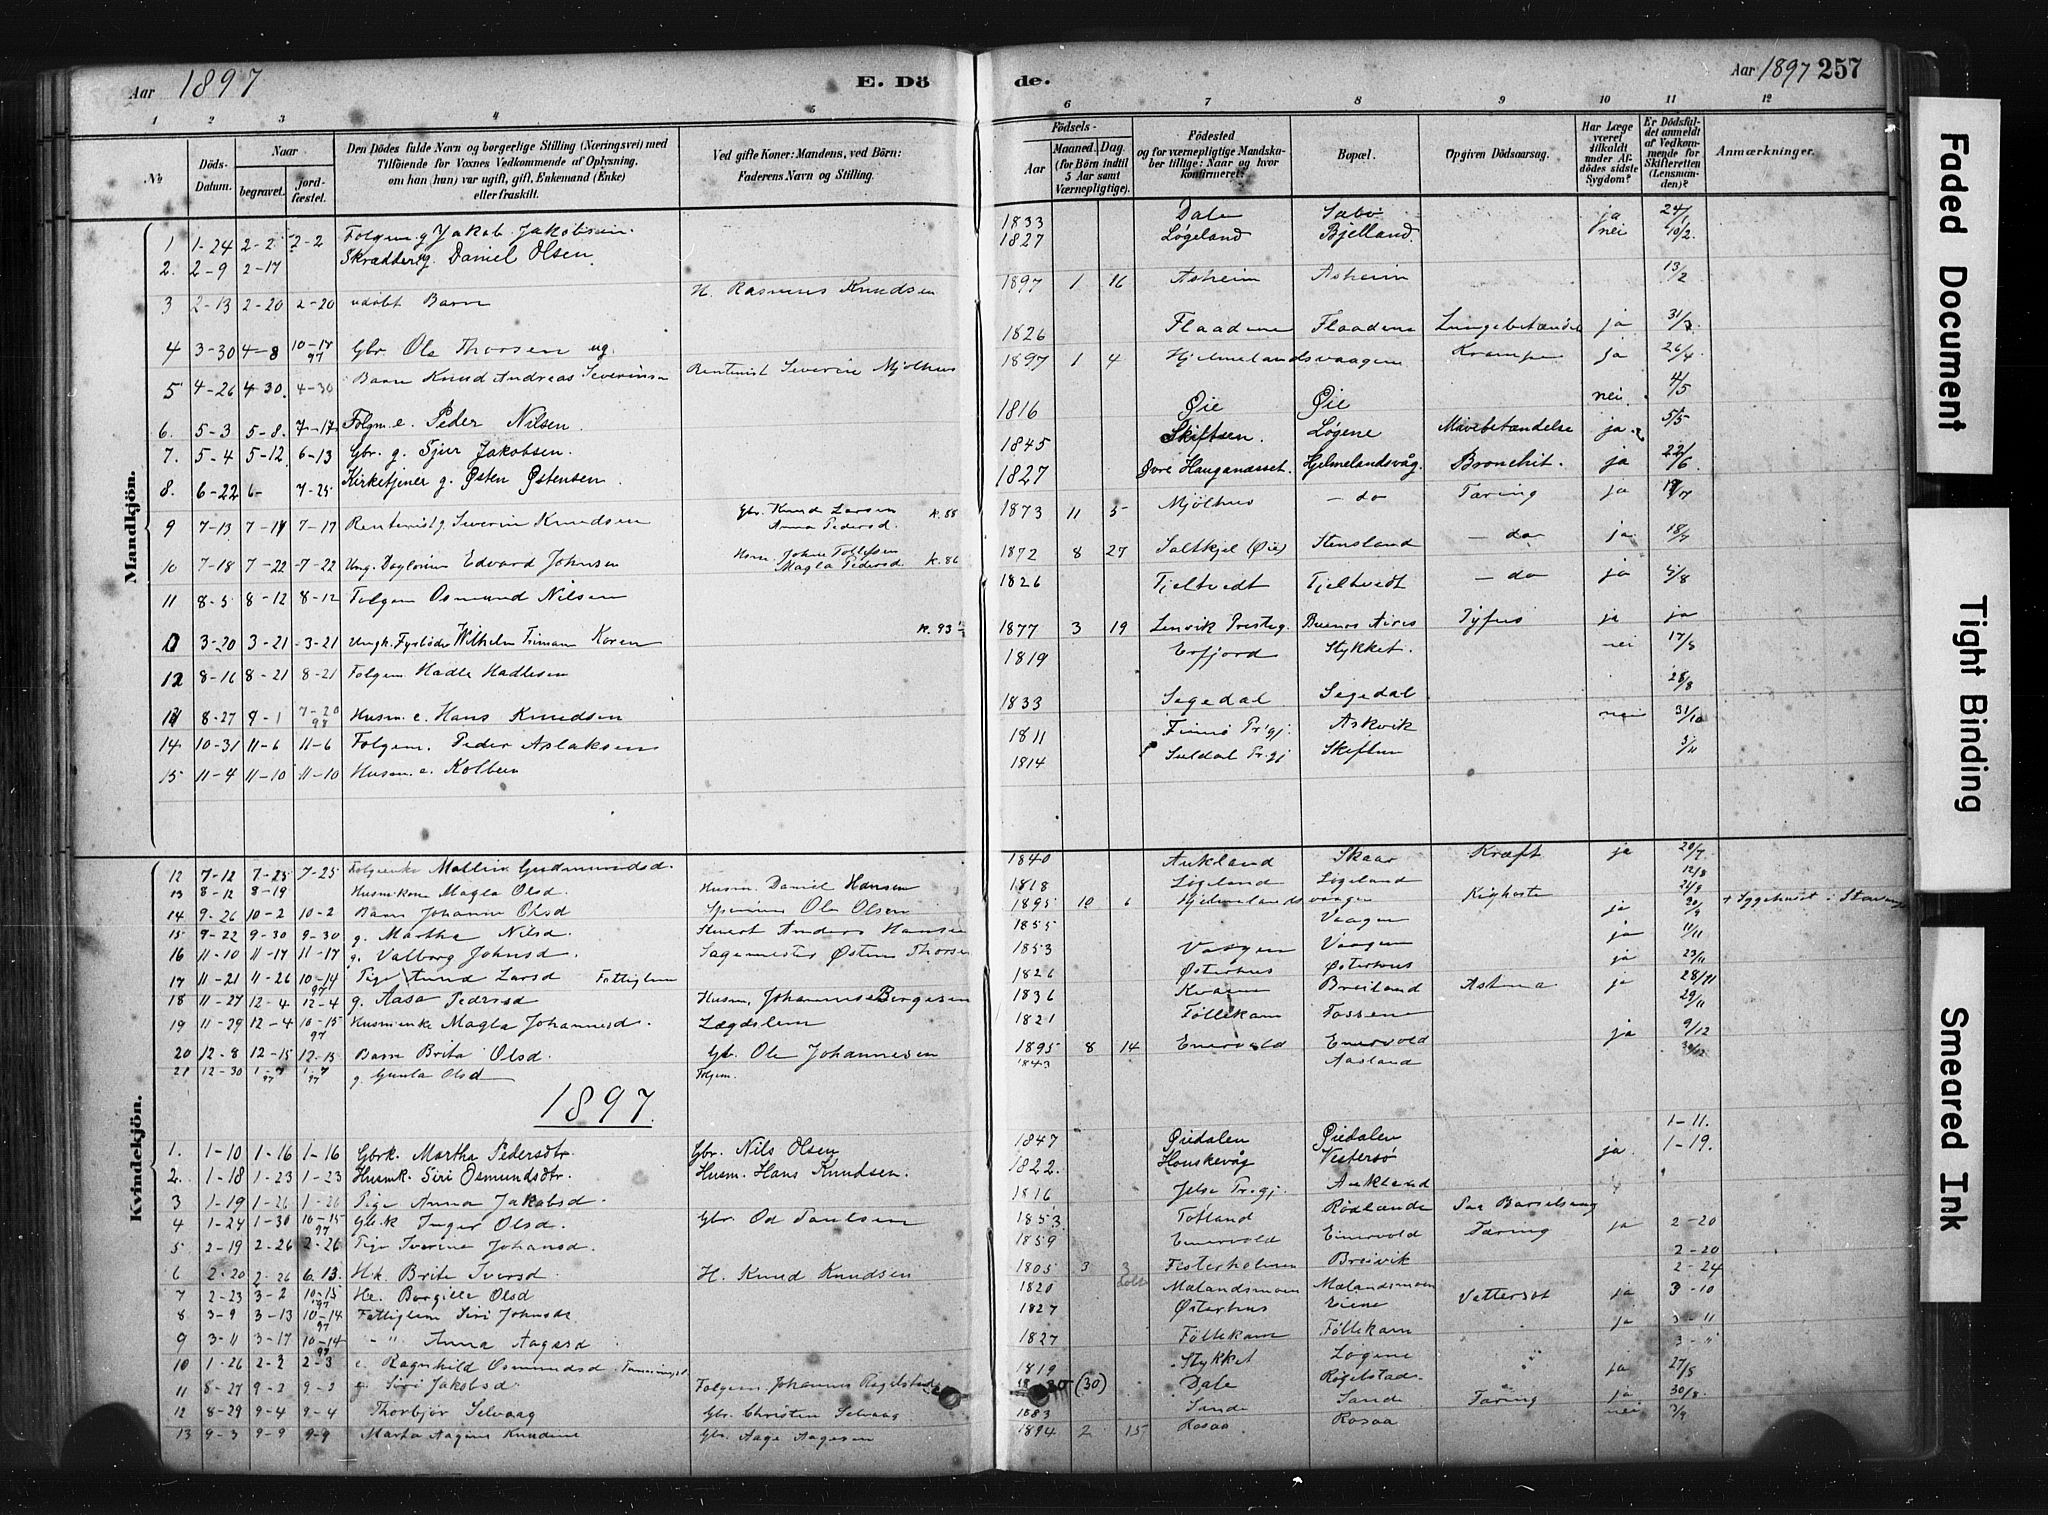 Aar 1897 E. Dö de. Aar 1897 257
1 2 3 4 5 6 7 8 9 10 11 12
No
Döds-Datum.
Naar
begravet.
jord-fæstet.
Den Dödes fulde Navn og borgerlige Stilling (Næringsvei) med
Tilföiende for Voxnes Vedkommende af Oplysning,
om han (hun) var ugift, gift, Enkemand (Enke)
eller fraskilt.
Ved gifte Koner: Mandens, ved Börn:
Faderens Navn og Stilling.
Födsels-
Aar
Maaned. Dag
(for Börn indtil
5 Aar samt
Værnepligtige).
Födested
og for værnepligtige Mandska-
ber tillige: Naar og hvor
konfirmeret?
Bopæl.
Opgiven Dödsaarsag.
Har Læge
været
tilkaldt
under Af-
dödes sidste
Sygdom?
Er Dödsfal-
det anmeldt
af Vedkom-
mende for
Skifteretten
(Lensman-
den)?
Anmærkninger.
Mandkjön.
1 1-24 2-2 2-2 Folgem. g Jakob Jakobsen. 1833 Dale Sæbø ja 24/1
2. 2-9 2-17 Skrædder g. Daniel Olsen 1827 Løgeland Bjelland. nei 10/2.
3 2-13 2-20 2-20 udøbt Barn H. Rasmus Knudsen 1897 1 16 Asheim Asheim 13/2
4 3-30 4-8 10-14 97 Gbr. Ole Thorsen ug. 1826 Flaadene Flaadene Lungebetændel ja 31/3
5 4-26 4-30. 4-30 Barn Knud Andreas Severinsen Rentenist Severin Mjølhus 1897 1 4 Hjelmelandsvaagen Krampe ja 26/4
6. 5-3 5-8. 7-17 Folgm. e. Peder Nilsen. 1816 Øie Øie nei. 4/5
7. 5-4 5-12 6-13 Gbr. g. Sjur Jakobsen. 1845 Skiftsen. Løgene Mavebetændelse ja 5/5
8. 6-22 6- 7-25 Kirketjener g. Østen Østensen. 1827 Øvre Hauganæsset. Hjelmelandsvåg Bronchit. ja 22/6
9 7-13 7-17 7-17 Rentenist g. Severin Knudsen Gbr. Knud Larsen Anna Pedersd. K. 88 1873 11 5 Mjølhus -do Tæring ja 17/7
10 7-18 7-22 7-22 Ung. Daglønner Edvard Johnsen Hsm. John Tollefsen Magla Pedersd K. 86 1872 8 27 Saltkjel (Øie) Stensland -do ja 18/7
11 8-5 8-12 8-12 Folgem Osmund Nilsen 1826 Tjeltvedt Tjeltvedt -do ja 5/8
3-20 3-21 3-21 Ungk. Wilhelm Koren K. 93 1877 3 19 Lenvik Presteg. Buenos Aires Tyfus ja ja
12 8-16 8-21 8-21 Folgem Hadle Hadlesen 1819 Erfjord Stykket. nei 17/8
8-27 9-1 7-20 98 Husm. e. Hans Knudsen 1833 Segedal Segedal 28/8
14 10-31 11-6 11-6 Folgem. Peder Aslaksen 1811 Finnø Pr.gj. Askvik nei 31/10
15 11-4 11-10 11-10 Husm. e. Kolbein 1814 Suldal Pr.gj Skiftun 5/11
Kvindekjön.
12 7-12 7-25 7-25 Folgeenke Mallin Gudmundsd. 1840 Aukland Skaar Kræft ja 20/7
13 8-12 8-19 Husmkone Magla Olsd. Husm. Daniel Hansen 1818 Løgeland Løgeland 12/8
14 9-26 10-2 10-2 Barn Johanne Olsd Ole Olsen 1895 10 6 Hjelmelandsvaagen Kighoste 29/9
15 9-22 9-30 9-30 g. Martha Nilsd. Stuert Anders Hansen 1855 Vaagen ja 30/9 + Sygehuset i Stavanger
16 11-10 11-17 11-17 g. Valborg Johnsd. Sagemester Østen Thorsen 1853 Vaagen Vaagen ja 11/11
17 11-21 11-26 10-14 97 Pige Anna Larsd Fattiglem 1826 Østerhus Østerhus ja 23/11
18 11-27 12-4 12-4 g. Aasa Pedersd Husm. Johannes Børgesen 1836 Kvame Breiland Astma ja 28/11
19 11-29 12-4 10-15 97 Husmenke Magla Johannesd. Lægdslem 1821 Tøllekam Fossene 29/11
20 12-8 12-15 12-15 Barn Brita Olsd. Gb. Ole Johannesen 1895 8 14 Enervold Enervold ja 9/12
21 12-30 1-7 97 1-7 97 g. Gunla Olsd Folgem. 1843 Aasland 30/12
1897.
1. 1-10 1-16 1-16 Gbrk. Martha Pedersdtr. Gbr. Nils Olsen 1847 Øiedalen Øiedalen 1-11.
2. 1-18 1-23 1-23 Husmk. Siri Osmundsdtr. Husm. Hans Knudsen. 1822. Houskevåg Vestersø ja. 1-19.
3 1-19 1-26 1-26 Pige Anna Jakobsd 1816 Jelse Pr.gj. Aukland
4 1-24 1-30 10-15 97 Gb.k Inger Olsd. Gbr. Od Paulsen 1853. Totland Rødlande Paa Barselseng
5 2-19 2-26 2-26 Pige Iverine Johansd. 1859 Enervold Enervold Tæring ja 2-20
6 2-20 2-26 6.13. Hk. Brite Iversd. H. Knud Knudsen 1805 3 3 Fisterholmen Breivik 2-20
7 2-23 3-2 10-15 97 He. Borgille Olsd 1820 Mælandsmoen Mælandsmoen 2-24
8 3-9 3-13 10-14 97 Fattiglem Siri Johnsd. 1827 Østerhus Vattersot ja 3-10
9 3-11 3-17 10-14 97 -"- Anna Aagesd 1827 Føllekam Føllekam ja 3-11
10 1-26 2-3 2-3 e. Ragnhild Osmundsd 1819 Stykket Løgene 3-"
11 8-27 9-2 9-2 g. Siri Jakobsd. Folgem. Johannes Røgelstad (30) Dale Røgelstad ja 27/8
12 8-29 9-4 9-4 Thorbjør Selvaag Gbr. Christen Selvaag 1883 Sande Sande Tæring ja 30/8
13 9-3 9-9 9-9 Marta Aagine Knudine Gbr. Aage Aagesen 1894 2 15 Rosaa Rosaa nei 3/9
Faded Document
Tight Binding
Smeared Ink